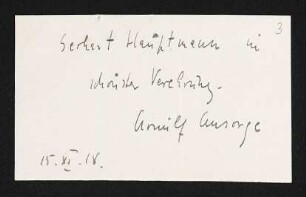 3
Gerhart Hauptmann in
schönster Verehrung.
Arnulf Ansorge
15. XI. 18.